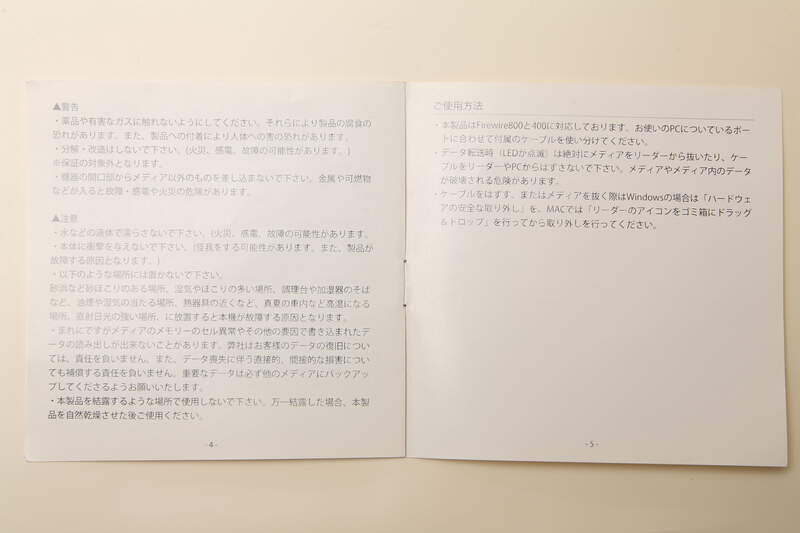 ▲警告
・薬品や有害なガスに触れないようにしてください。それらにより製品の腐食の
恐れがあります。また、製品への付着により人体への害の恐れがあります。
・分解・改造はしないで下さい。(火災、感電、故障の可能性があります。)
※保証の対象外となります。
・機器の開口部からメディア以外のものを差し込まないで下さい。金属や可燃物
などが入ると故障・感電や火災の危険があります。
▲注意
・水などの液体で濡らさないで下さい。(火災、感電、故障の可能性があります。
・本体に衝撃を与えないで下さい。(怪我をする可能性があります。また、製品が
故障する原因となります。)
・以下のような場所には置かないで下さい。
砂浜など砂ぼこりのある場所、湿気やほこりの多い場所、調理台や加湿器のそば
など、油煙や湿気の当たる場所、熱器具の近くなど、真夏の車内など高温になる
場所、直射日光の強い場所、に放置すると本機が故障する原因となります。
・まれにですがメディアのメモリーのセル異常やその他の要因で書き込まれたデ
ータの読み出しが出来ないことがあります。弊社はお客様のデータの復旧につい
ては、責任を負いません。また、データ喪失に伴う直接的、間接的な損害につい
ても補償する責任を負いません。重要なデータは必ず他のメディアにバックアッ
プしてくださるようお願いいたします。
・本製品を結露するような場所で使用しないで下さい。万一結露した場合、本製
品を自然乾燥させた後ご使用ください。
- 4 -
ご使用方法
・本製品はFirewire800と400に対応しております。お使いのPCについているポー
トに合わせて付属のケーブルを使い分けてください。
・データ転送時（LEDが点滅）は絶対にメディアをリーダーから抜いたり、ケー
ブルをリーダーやPCからはずさないで下さい。メディアやメディア内のデータ
が破壊される危険があります。
・ケーブルをはずす、またはメディアを抜く際はWindowsの場合は「ハードウェ
アの安全な取り外し」を、MACでは「リーダーのアイコンをゴミ箱にドラッグ
＆ドロップ」を行ってから取り外しを行ってください。
- 5 -